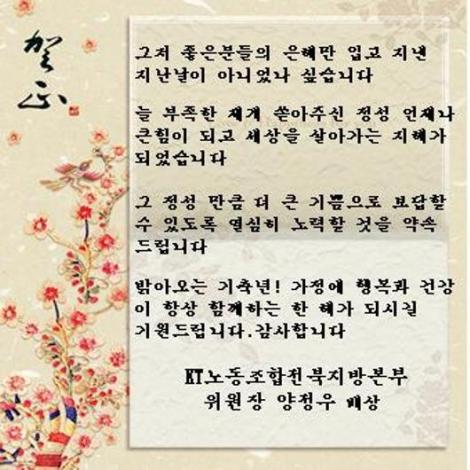 賀正
그저 좋은분들의 은혜만 입고 지낸
지난날이 아니었나 싶습니다
늘 부족한 제게 쏟아주신 정성 언제나
큰힘이 되고 세상을 살아가는 지혜가
되었습니다
그 정성 만큼 더 큰 기쁨으로 보답할
수 있도록 열심히 노력할 것을 약속
드립니다
밝아오는 기축년! 가정에 행복과 건강
이 항상 함께하는 한 해가 되시길
기원드립니다.감사합니다
KT노동조합전북지방본부
위원장 양정우 배상